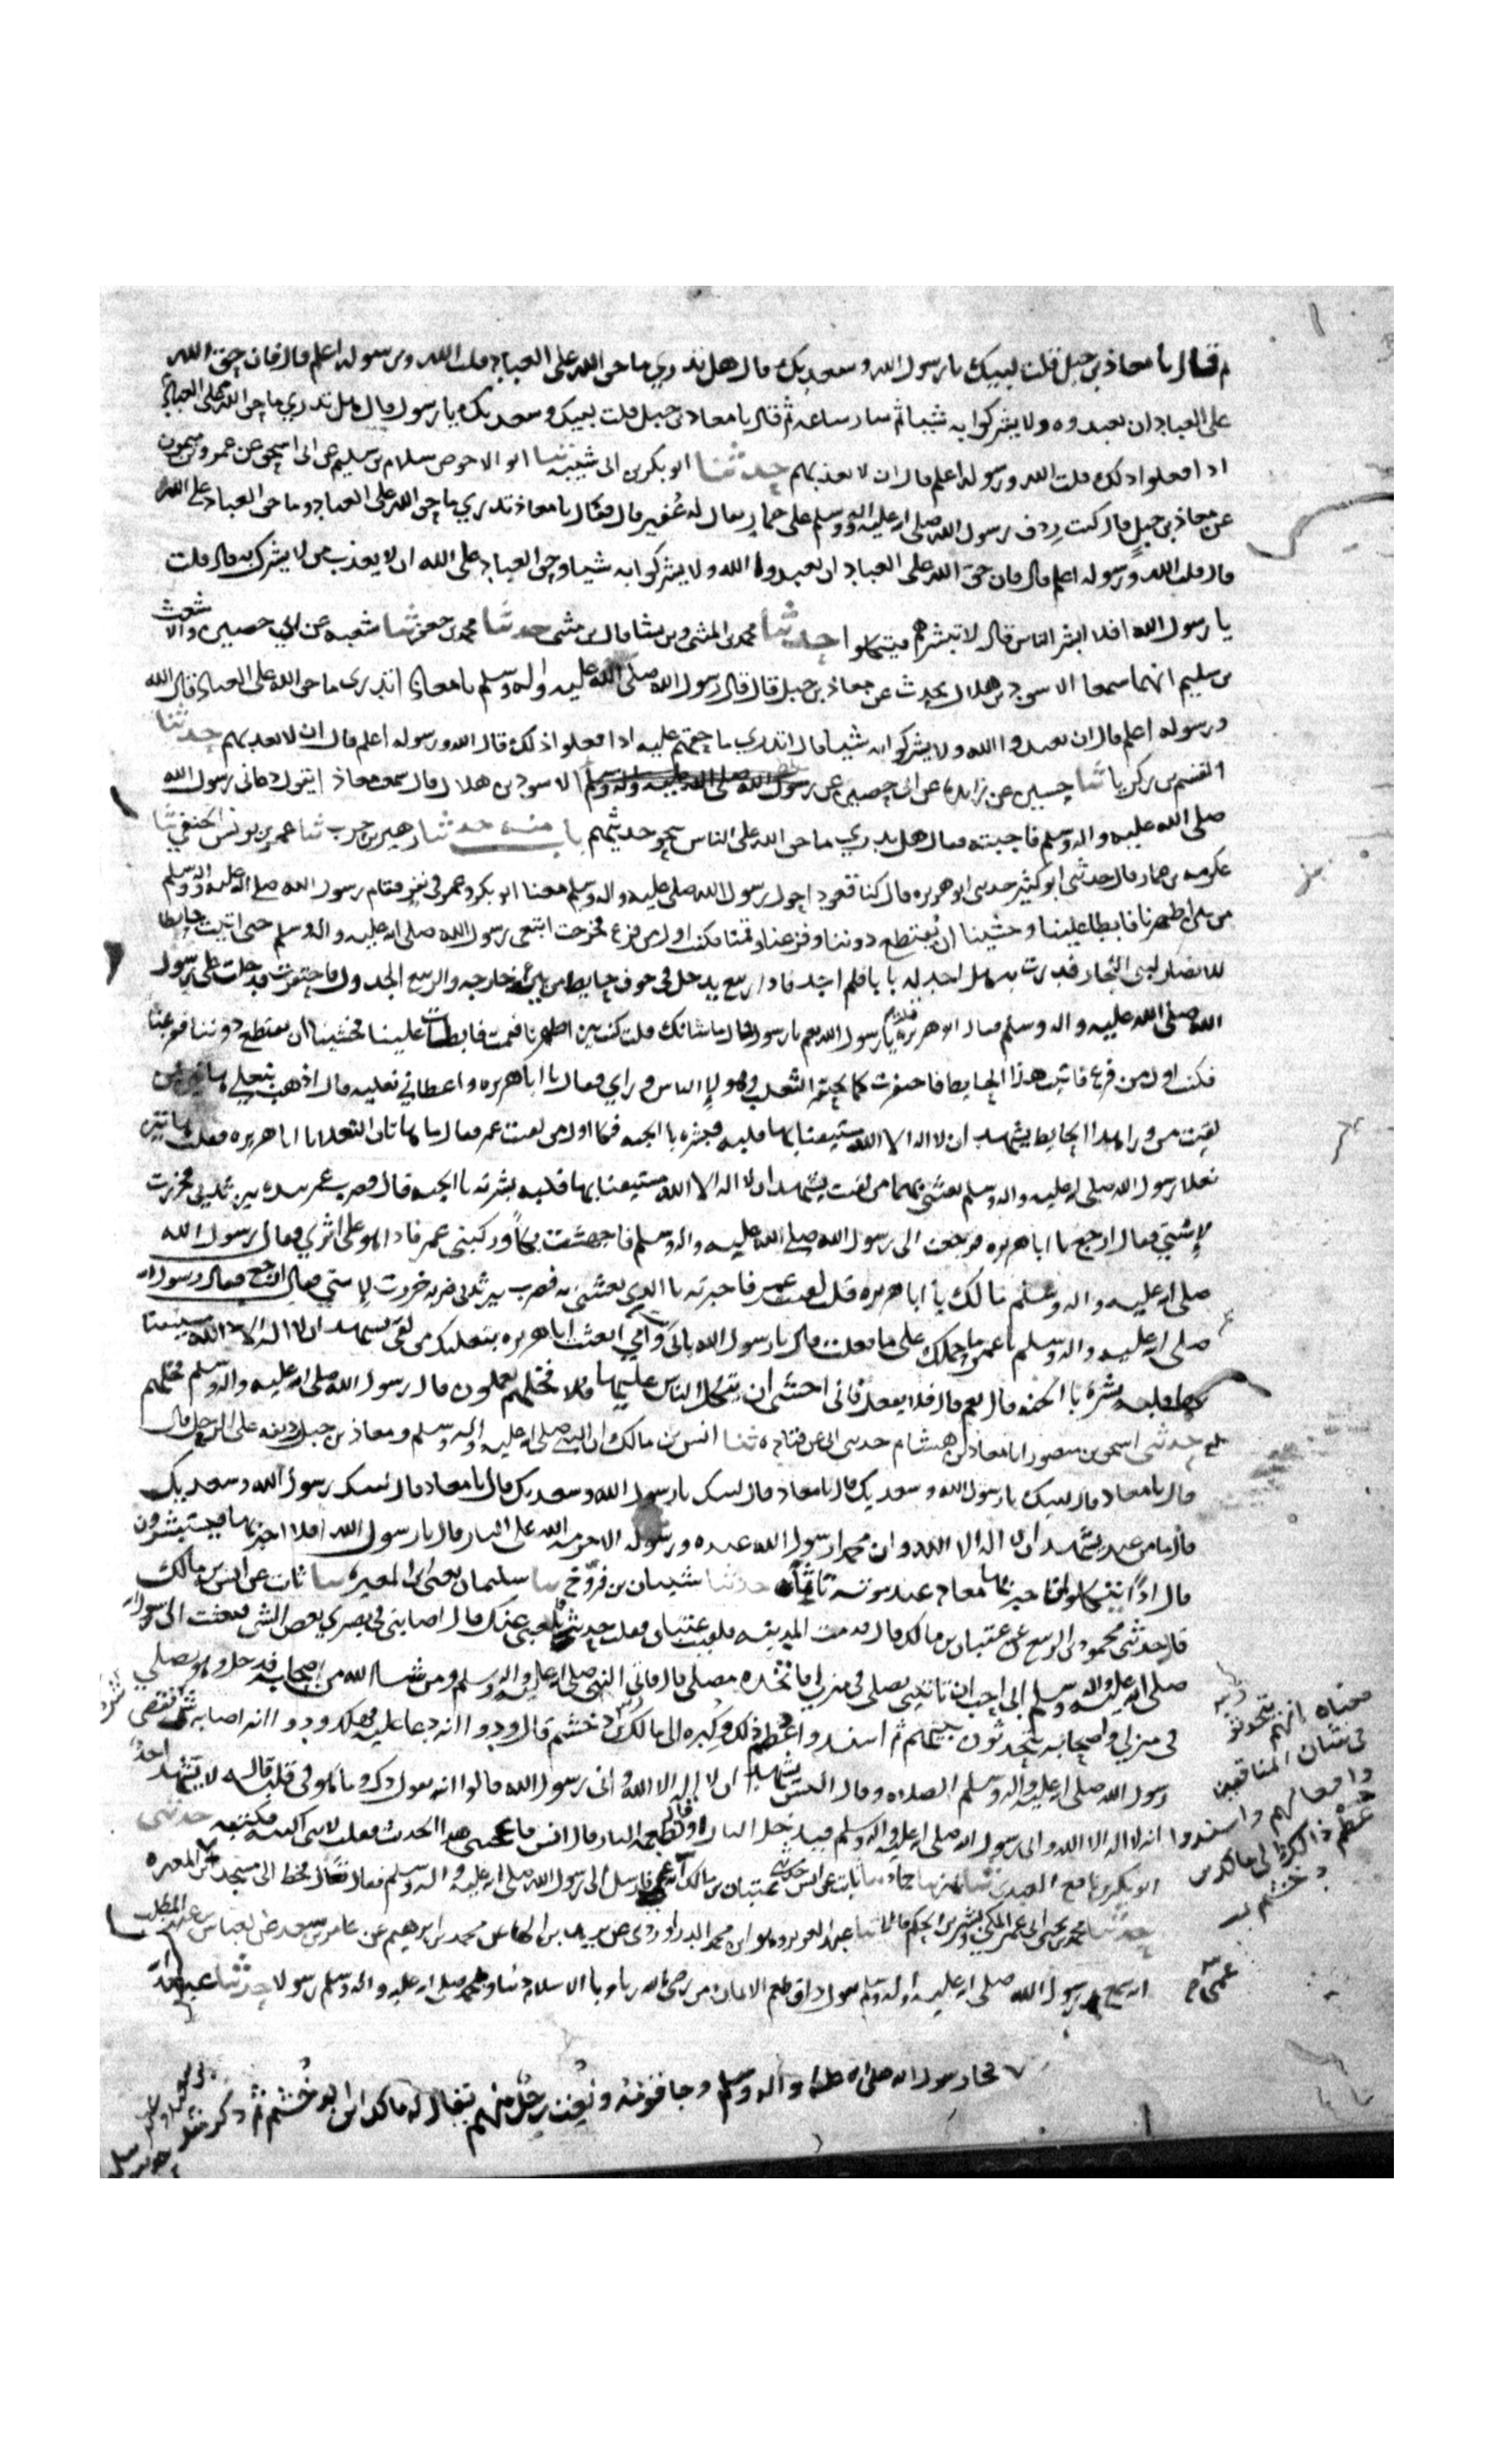 ثم قال يا معاذ بن جبل قلت لبيك يا رسول الله وسعديك قال هل تدري ما حق الله على العباد قلت الله ورسوله اعلم قال فان حق الله
على العباد ان يعبدوه ولا يشركوا به شيئا ثم سار ساعة ثم قال يا معاذ بن جبل قلت لبيك وسعديك يا رسول الله قال هل تدري ما حق العباد على الله
اذا فعلوا ذلك قلت الله ورسوله اعلم قال ان لا يعذبهم حدثنا ابو بكر بن ابي شيبة ثنا ابو الاحوص سلام بن سليم عن ابي اسحق عن عمرو بن ميمون
عن معاذ بن جبل قال كنت ردف رسول الله صلى الله عليه واله وسلم على حمار يقال له عفير قال فقال يا معاذ تدري ما حق الله على العباد وما حق العباد على الله
قال قلت الله ورسوله اعلم قال فان حق الله على العباد ان يعبدوا الله ولا يشركوا به شيئا وحق العباد على الله ان لا يعذب من لا يشرك به قال قلت
يا رسول الله افلا ابشر الناس قال لا تبشرهم فيتكلوا حدثنا محمد بن المثنى وبن بشار قال بن مثنى حدثنا محمد بن جعفر ثنا شعبه عن ابي حصين والاشعث
بن سليم انهما سمعا الاسود بن هلال يحدث عن معاذ بن جبل قال قال رسول الله صلى الله عليه واله وسلم يا معاذ اتدري ما حق الله على العباد قال الله
ورسوله اعلم قال ان يعبدوا الله ولا يشركوا به شيا قال اتدري ما حقهم عليه اذا فعلوا ذلك قال الله ورسوله اعلم قال ان لا يعذبهم حدثنا
القسم بن زكريا ثنا حسين عن زايدة عن ابي حصين عن رسول الله صلى الله عليه واله وسلم الاسود بن هلال قال سمعت معاذ ايقول دعاني رسول الله
صلى الله عليه واله وسلم فاجبته فقال هل تدري ما حق الله على الناس نحو حديثهم باب منه حدثنا زهير بن حرب ثنا عمر بن يونس الحنفي ثنا
عكرمه بن عمار قال حدثني ابو كثير حدثني ابو هريره قال كنا قعودا حول رسول الله صلى عليه واله وسلم معنا ابو بكر وعمر في نفر فقام رسول الله صلى الله عليه واله وسلم
من بين اظهرنا فابطا علينا وخشينا ان يقتطع دوننا وفزعنا وقمنا فكنت اول من فزع فخرجت ابتغي رسول الله صلى الله عليه واله وسلم حتى اتيت حايطا
للانصار لبني النجار فدرت به هل اجد له بابا فلم اجد فاذا ربيع يدخل في جوف حايط من بير خارجه والربيع الجدول فاحتفزت فدخلت على رسول
الله صلى الله عليه واله وسلم فقال ابو هريره قلت يا رسول الله نعم يا رسول الله قال ما شانك قلت كنت بين اظهرنا فقمت فابطات علينا فخشينا ان تقتطع دوننا ففزعنا
فكنت اول من فزع فاتيت هذا الحايط فاحتفزت كما يحتفز الثعلب وهولا الناس وراي فقال يا ابا هريره واعطاني نعليه قال اذهب بنعلي هاتين فمن
لقيت من ورا هذا الحايط يشهد ان لا اله الا الله مستيقنا بها قلبه فبشره بالجنه فكان اول من لقيت عمر فقال ما هاتان النعلان يا ابا هريره فقلت هاتين
نعلا رسول الله صلى الله عليه واله وسلم بعثني بهما من لقيت يشهد ان لا اله الا الله مستيقنا بها قلبه بشرته بالجنه قال فضرب عمر بيده بين ثديي فخررت
لاستي فقال ارجع يا ابا هريره فرجعت الى رسول الله صلى الله عليه واله وسلم فاجهشت بكاء وركبني عمر فاذا هو على اثري فقال رسول الله
صلى الله عليه واله وسلم مالك يا ابا هريره قلت لقيت عمر فاخبرته بالذي بعثتني به فضرب بين ثديي ضربه خررت لاستي فقال ارجع فقال رسول الله
صلى الله عليه واله وسلم يا عمر ما حملك على ما فعلت قال يا رسول الله بابي وامي ابعثت ابا هريره بنعليك من لقي يشهد ان لا اله الا الله مستيقنا
بها قلبه بشره بالجنه قال نعم قال فلا تفعل فاني اخشى ان يتكل الناس عليها فخلهم يعملون قال رسول الله صلى الله عليه واله وسلم فخلهم
حدثني اسحق بن منصور انا معاذ بن هشام حدثني ابي عن قتاده ثنا انس بن مالك ان النبي صلى الله عليه واله وسلم ومعاذ بن جبل رديفه على الرحل قال
قال يا معاذ قال لبيك يا رسول الله وسعديك قال يا معاذ قال لبيك يا رسول الله وسعديك قال يا معاذ قال لبيك رسول الله وسعديك
قال ما من عبد يشهد ان لا اله الا الله وان محمدا رسول الله عبده ورسوله الا حرمه الله على النار قال يا رسول الله افلا اخبر بها فيستبشرون
قال اذا يتكلوا فاخبر بها معاذ عند موته تاثما حدثنا شيبان بن فروخ ثنا سليمان يعني ابن المغيره ثنا ثابت عن انس بن مالك
قال حدثني محمود بن الربيع عن عتبان بن مالك قال قدمت المدينه فلقيت عتبان فقلت حديث بلغني عنك قال اصابني في بصري بعض الشي فبعثت الى رسول الله
صلى الله عليه واله وسلم اني احب ان تاتيني تصلي في منزلي فاتخذه مصلى قال فاتى النبي صلى الله عليه واله وسلم ومن شا الله من اصحابه فدخل وهو يصلي
في منزلي واصحابه يتحدثون بينهم ثم اسندوا عظم ذلك وكبره الى مالك بن دخشم قال ودوا انه دعا عليه فهلك ودوا انه اصابه شر فقضى
رسول الله صلى الله عليه واله وسلم الصلاه وقال اليس يشهد ان لا اله الا الله واني رسول الله قالوا انه يقول ذلك وما هو في قلبه قال لا يشهد احد
انه لا اله الا الله واني رسول الله صلى الله عليه واله وسلم فيدخل النار او تطعمه النار قال انس فاعجبني هذا الحديث فقلت لابني اكتبه فكتبه حدثني
ابو بكر بن نافع العبدي ثنا بهز ثنا حماد ثنا ثابت عن انس حدثني عتبان بن مالك انه عمي فارسل الى رسول الله صلى الله عليه واله وسلم فقال تعال فخط لي مسجدا
حدثنا محمد بن يحيى بن ابي عمر المكي وبشر بن الحكم قالا ثنا عبد العزيز وهو ابن محمد الدراوردي عن يزيد بن الهاد عن محمد بن ابرهيم عن عامر بن سعد عن العباس بن عبد المطلب
انه سمع رسول الله صلى الله عليه واله وسلم يقول ذاق طعم الايمان من رضي بالله ربا وبالاسلام دينا وبمحمد صلى الله عليه واله وسلم رسولا حدثنا
معناه انهم يتحدثو
في شان المنافقين
وافعالهم واسندوا
عظم ذالك الى مالك بن
دخشم
فجا رسول الله صلى الله عليه واله وسلم وجا قومه ونعت رجل منهم يقال له مالك ابن الدخشم ثم ذكر نحو